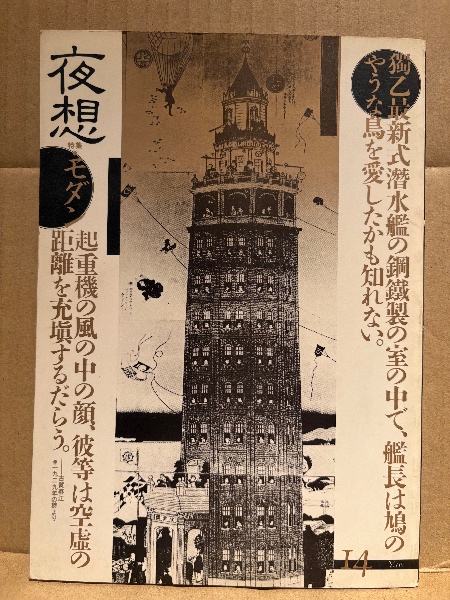 獨乙最新式潜水艦の鋼鐵製の室の中で、艦長は鳩の
やうな鳥を愛したかも知れない。
夜想
特集
モダン
起重機の風の中の顔、彼等は空虚の
距離を充塡するだらう。
——古賀春江
14
Yaso